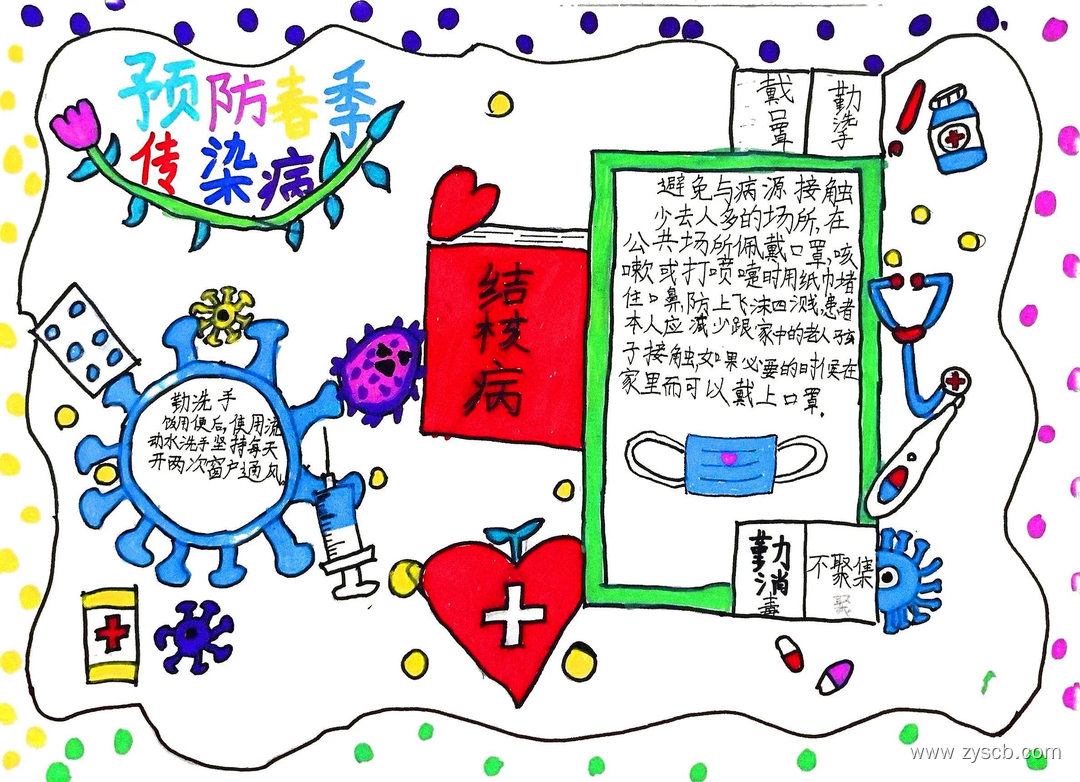 预防春季
传染病
戴口罩
勤洗手
避免与病源接触
少去人多的场所,在
公共场所佩戴口罩,咳
嗽或打喷嚏时用纸巾堵
住口鼻,防上飞沫四溅,患者
本人应减少跟家中的老人孩
子接触,如果必要的时候在
家里而可以戴上口罩.
结核病
勤洗手
饭用便后,使用流
动水洗手坚持每天
开两次窗户通风。
勤消毒
不聚集
www.zyscb.com